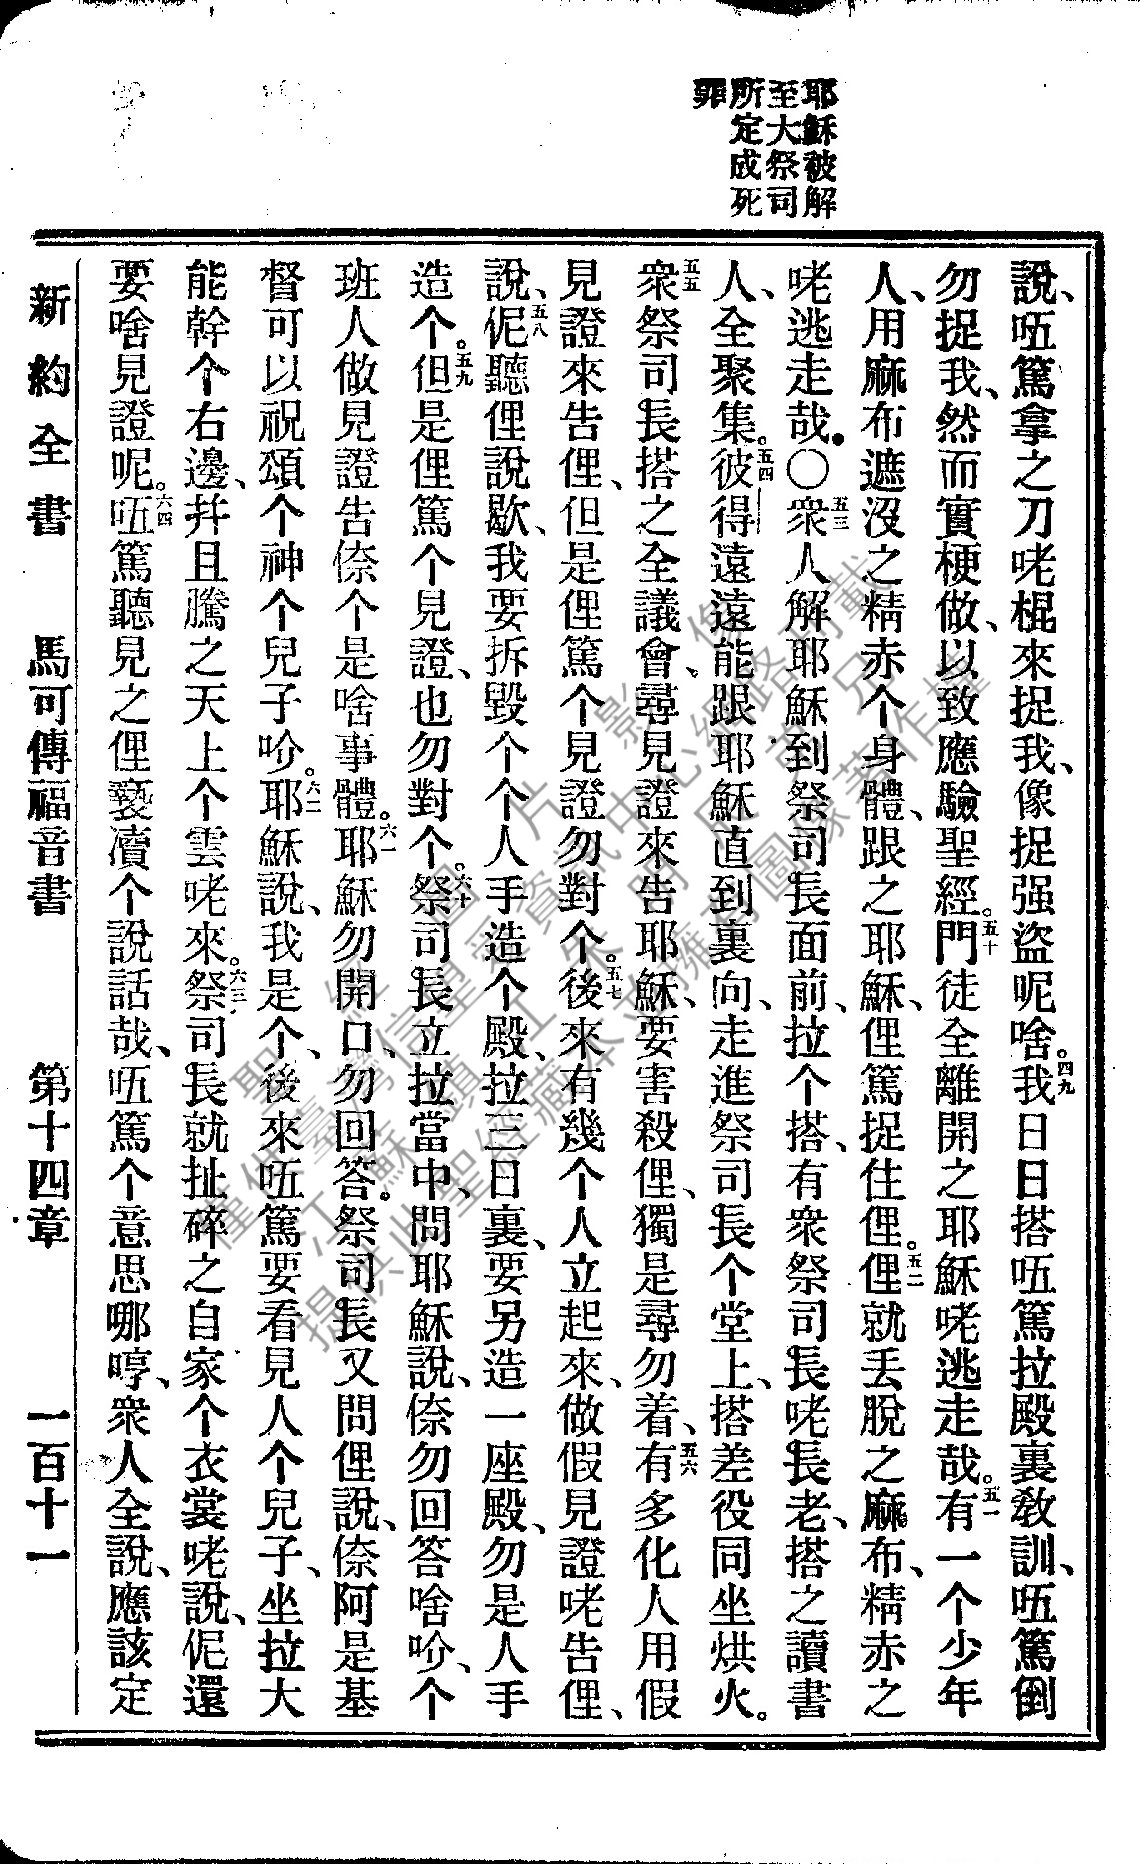 耶穌被解
至大祭司
所定成死
罪
說、㕶篤拿之刀咾棍來捉我、像捉强盜呢啥。四九我日日搭㕶篤拉殿裏敎訓、㕶篤倒
勿捉我、然而實梗做、以致應驗聖經。五十門徒全離開之耶穌咾逃走哉。五一有一个少年
人、用麻布遮沒之精赤个身體、跟之耶穌、俚篤捉住俚。五二俚就丟脫之麻布、精赤之
咾逃走哉●〇五三衆人解耶穌到祭司長面前、拉个搭、有衆祭司長咾長老、搭之讀書
人、全聚集。五四彼得遠遠能跟耶穌直到裏向、走進祭司長个堂上、搭差役同坐烘火。
五五衆祭司長搭之全議會、尋見證來告耶穌、要害殺俚、獨是尋勿着、五六有多化人用假
見證來告俚、但是俚篤个見證勿對个。五七後來有幾个人立起來、做假見證咾告俚、
說、五八伲聽俚說歇、我要拆毀个个人手造个殿、拉三日裏、要另造一座殿、勿是人手
造个。五九但是俚篤个見證、也勿對个。六十祭司長立拉當中、問耶穌說、倷勿回答啥吤、个
班人做見證告倷个是啥事體。六一耶穌勿開口、勿回答。祭司長又問俚說、倷阿是基
督可以祝頌个神个兒子吤。六二耶穌說、我是个、後來㕶篤要看見人个兒子、坐拉大
能幹个右邊、幷且騰之天上个雲咾來。六三祭司長就扯碎之自家个衣裳咾說、伲還
要啥見證呢。六四㕶篤聽見之俚褻瀆个說話哉、㕶篤个意思哪哼、衆人全說、應該定
新約全書　馬可傳福音書　第十四章　一百十一